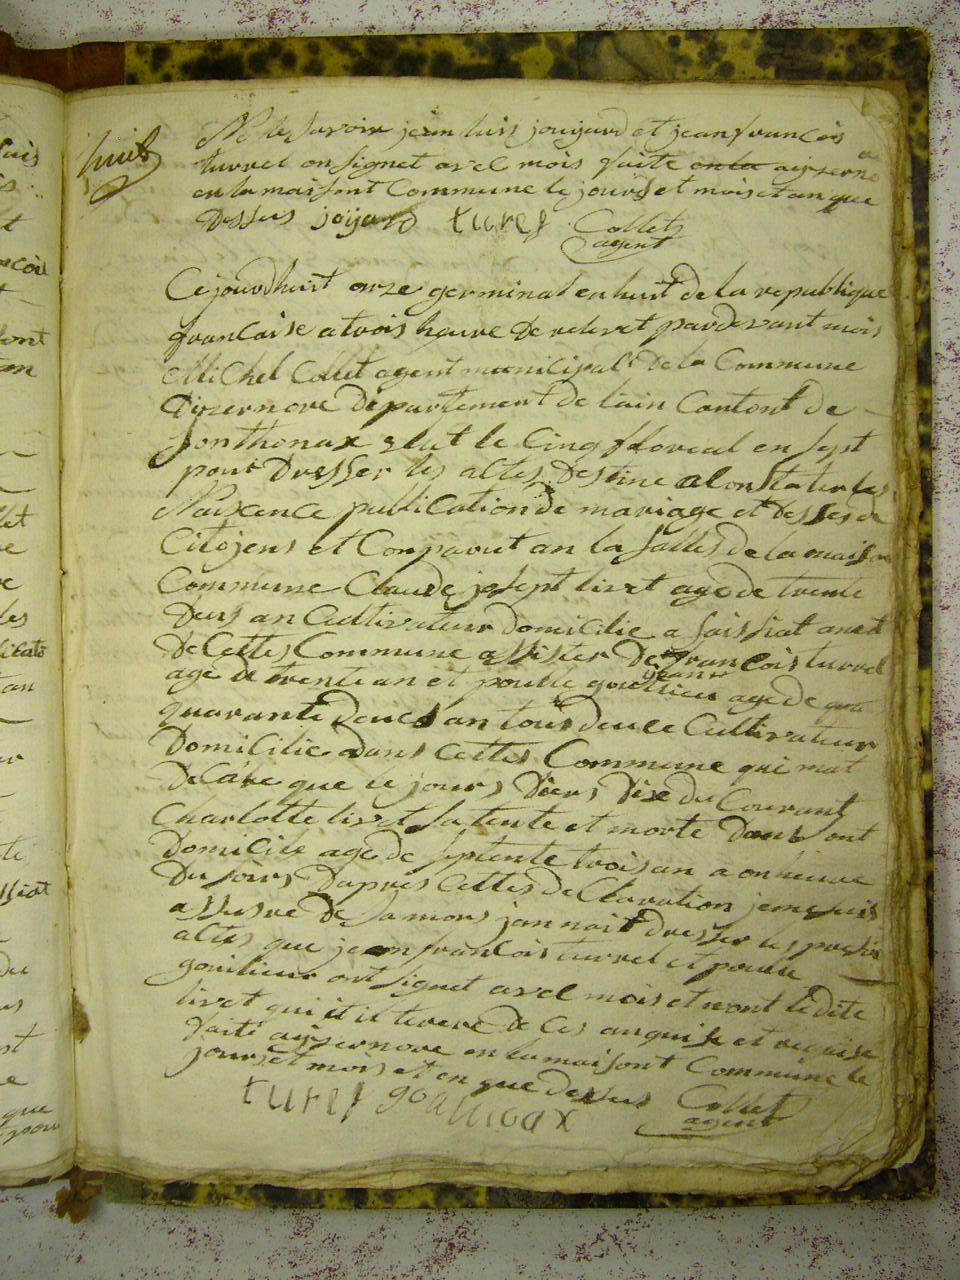 huit
ne le savoir jean luis joujard et jean francois
turrel on signet avel mois faite en la aizerno
en la maisont Commune le jours et mois et an que
Dessus joijard turel Collet
agent
Ce jourdhuit onze germinal en huit de la republique
francaise a trois heure de relevet par devant mois
Michel Collet agent municipal de la Commune
Dizernore departement de lain Cantont de
Sonthonax elut le Cinq floreal en sept
pour Dresser les actes Destine a Constater les
Naixence publication de mariage et desses de
Citojens et Comparut an la salles de la maison
Commune Claude josept livet age de trente
Deus an Cultivateur domicilie a
De Cettes Commune assister de francois turrel
jean
age de trente an et age de qua
quarante Deues an tous deuce Cultivateur
Domicilie dans Cettes Commune qui mat
Declare que le jours Diers Dixe du Courant
Charlotte livet sa tente et morte dans sont
Domicile age de septente trois an a onheure
Du soirs Dapres Cettes declaration je me suis
assusre de sa mors jan nait dresser les presan
actes que jean francois turrel et
ont signet avel mois et nont le dite
livet qui et il terere de Ces anquise et requise
faite aizernore en la maisont Commune le
jours et mois et en que dessus Collet
turel agent